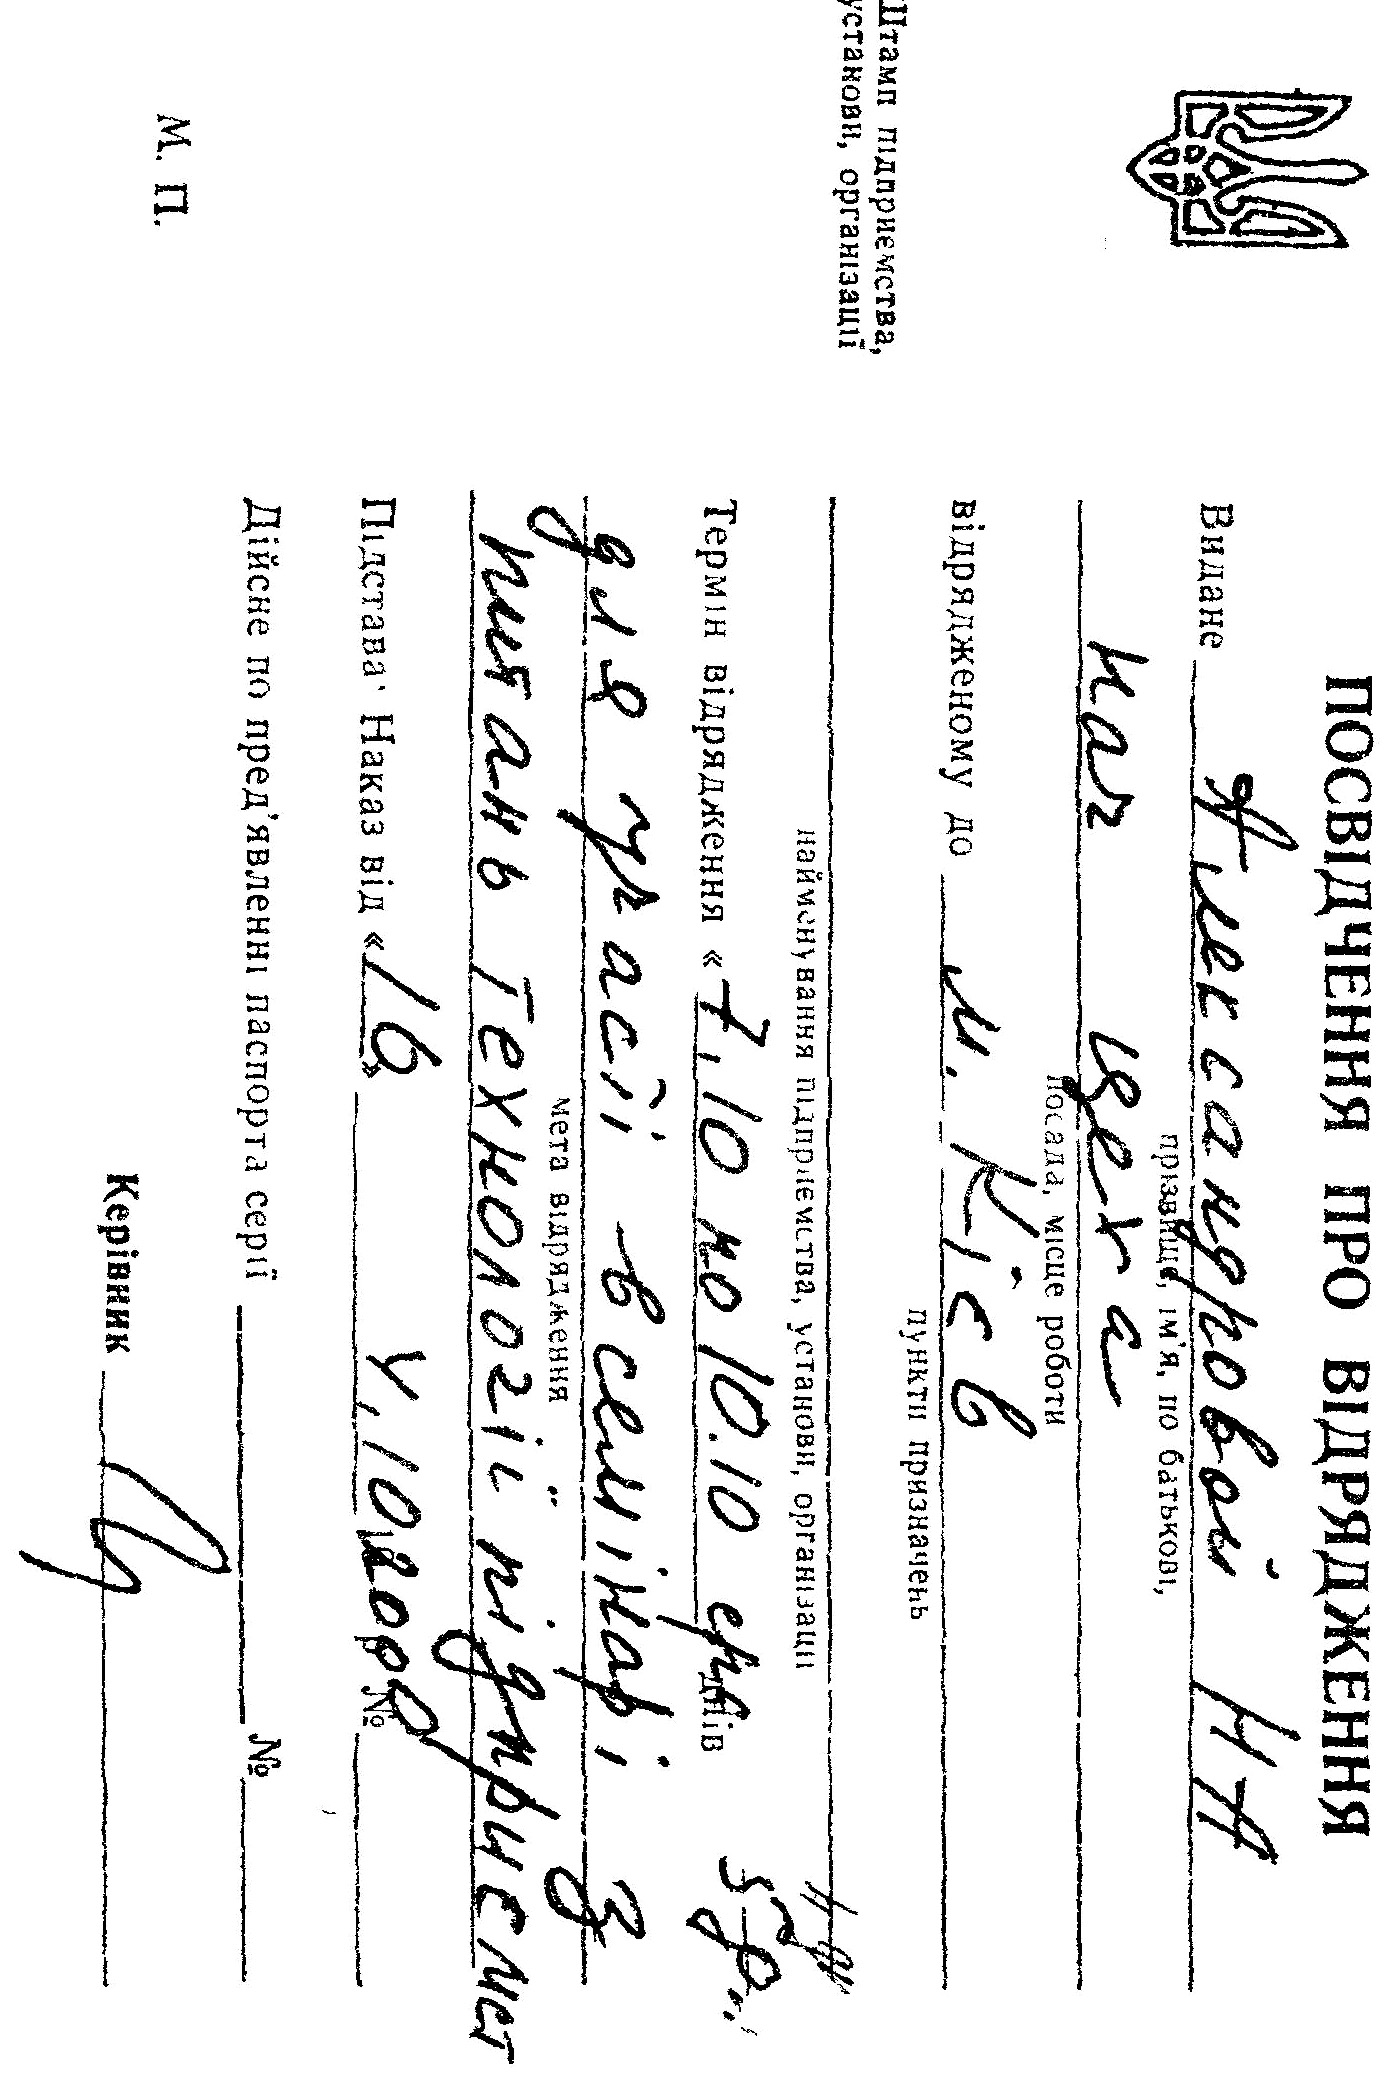 ПОСВІДЧЕННЯ ПРО ВІДРЯДЖЕННЯ
Видане Александровой Н А
прізвище, ім'я, по батькові,
нач цеха
посада, місце роботи
відрядженому до м. Київ
пункти призначень
Штамп підприємства,
установи, організації
найменування підприємства, установи, організації
Термін відрядження « 7.10 по 10.10 днів
для участі в семінарі з
мета відрядження
питань технології підприємст
Підстава: Наказ від «16» V.10.2000 р. №
Дійсне по пред'явленні паспорта серії №
М. П.
Керівник